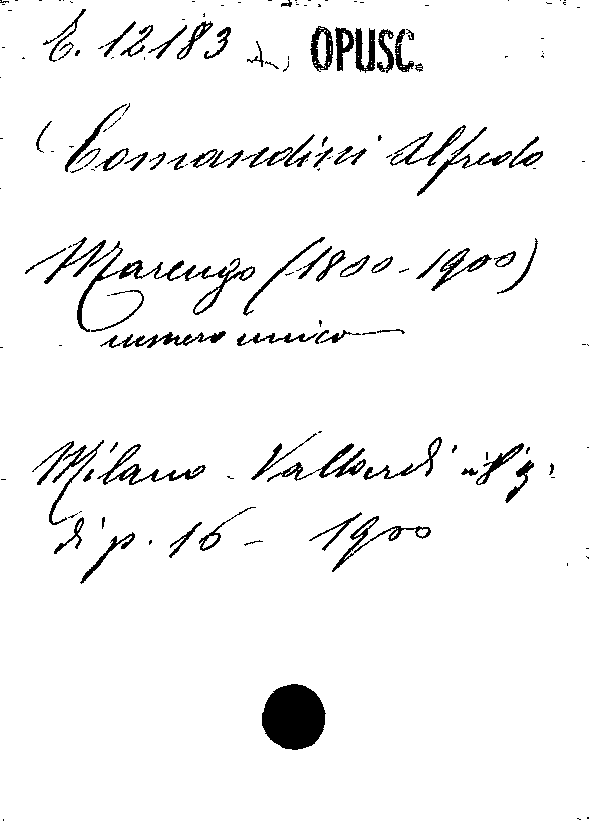 E. 12183 OPUSC.
Comandini Alfredo
Marengo (1800-1900)
numero unico
Milano - Vallardi
di p. 16 - 1900